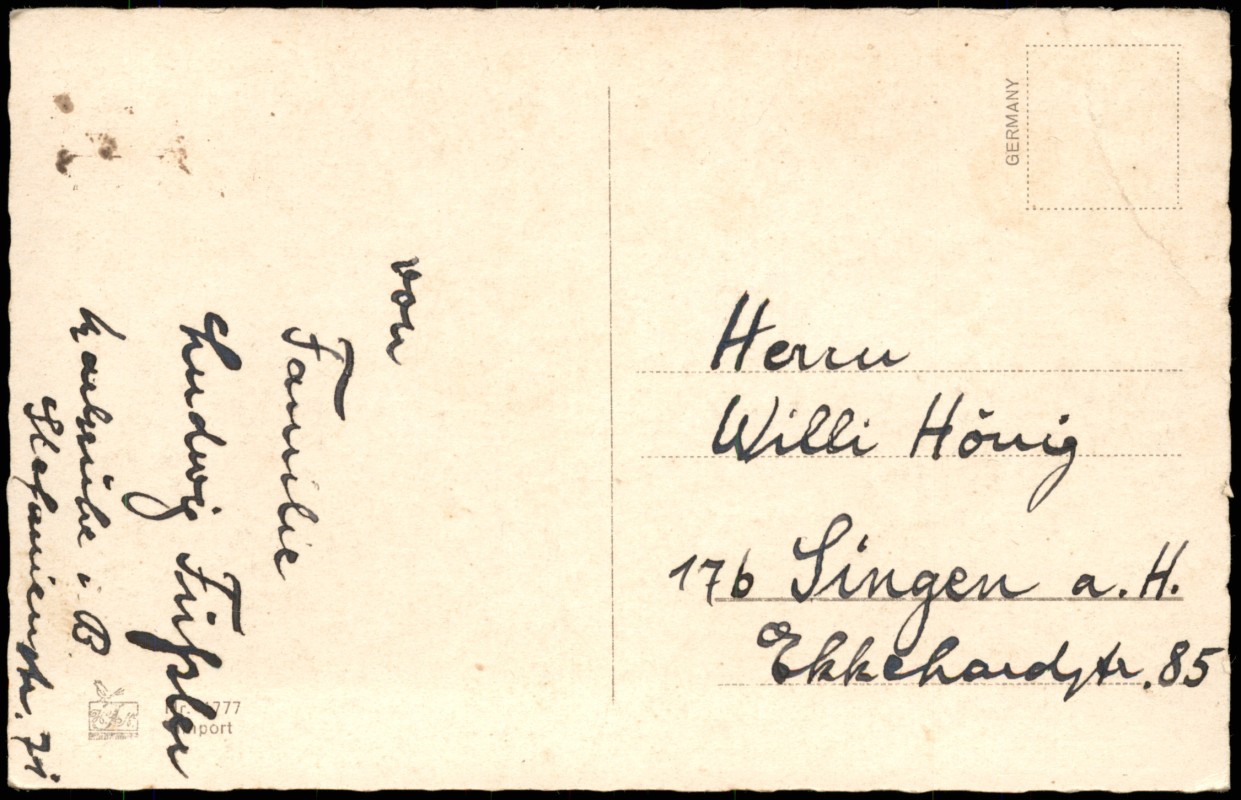 von
Familie
Ludwig
Karlsruhe i. B.
Stefanienstr. 71
GERMANY
Herrn
Willi Hönig
17b Singen a. H.
Ekkehardstr. 85